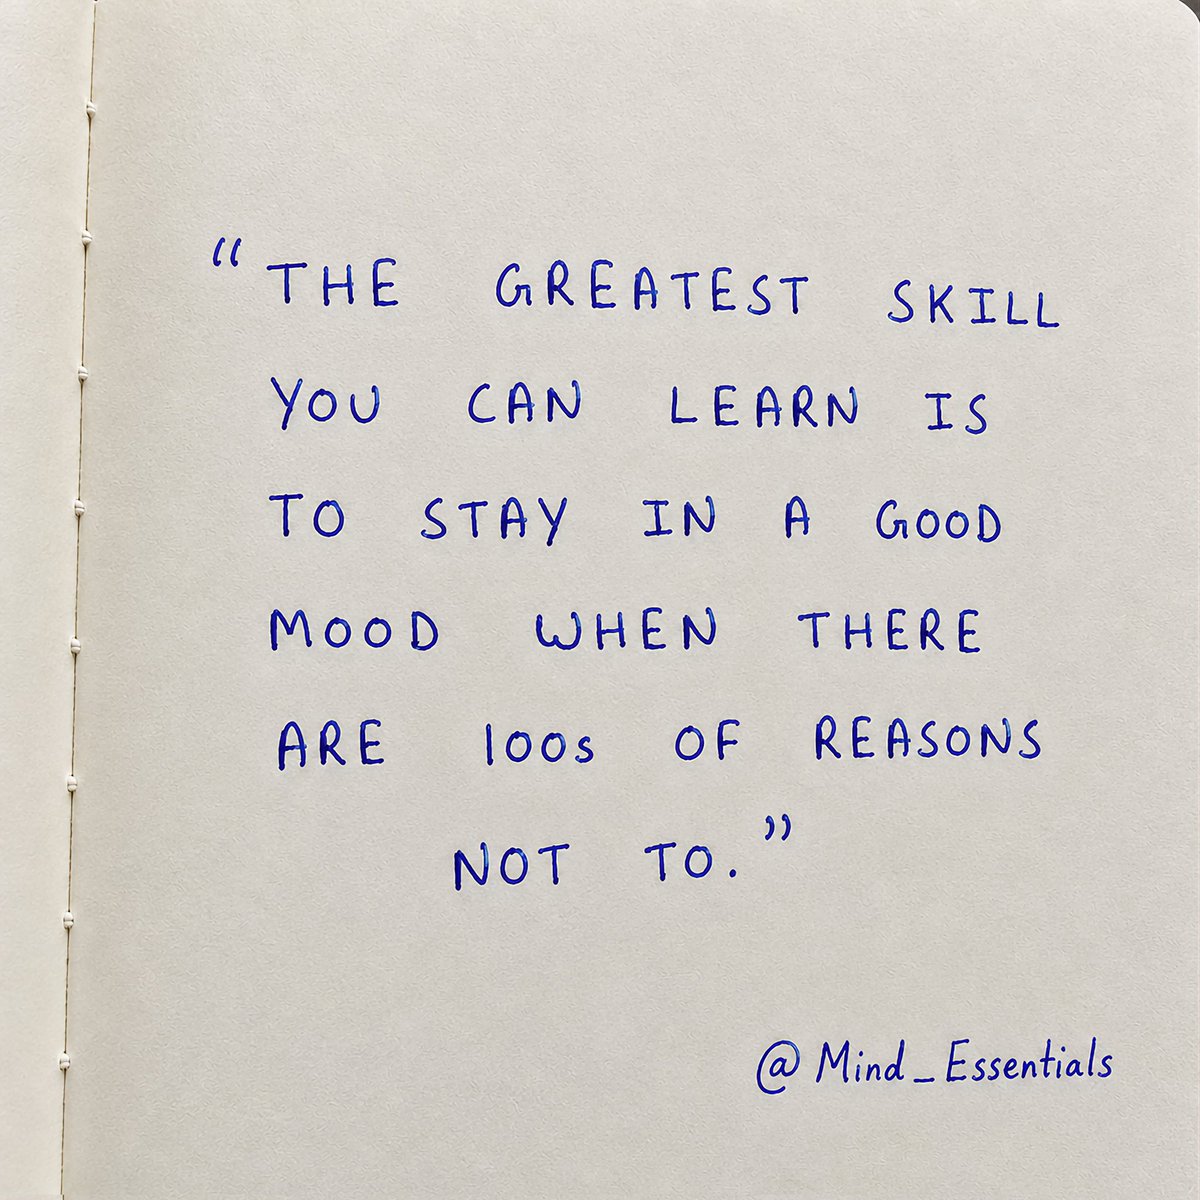 “THE GREATEST SKILL
YOU CAN LEARN IS
TO STAY IN A GOOD
MOOD WHEN THERE
ARE 100s OF REASONS
NOT TO.”
@Mind_Essentials